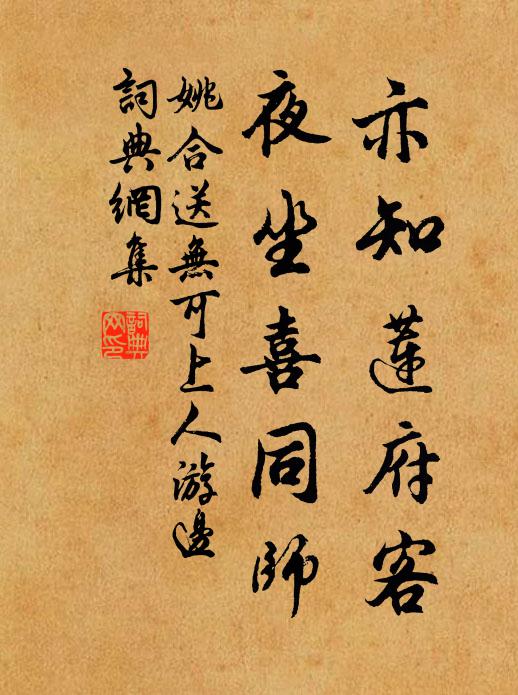 亦知蓮府客
夜坐喜同師
姚合送無可上人游邊
詞典網集
詞典网印